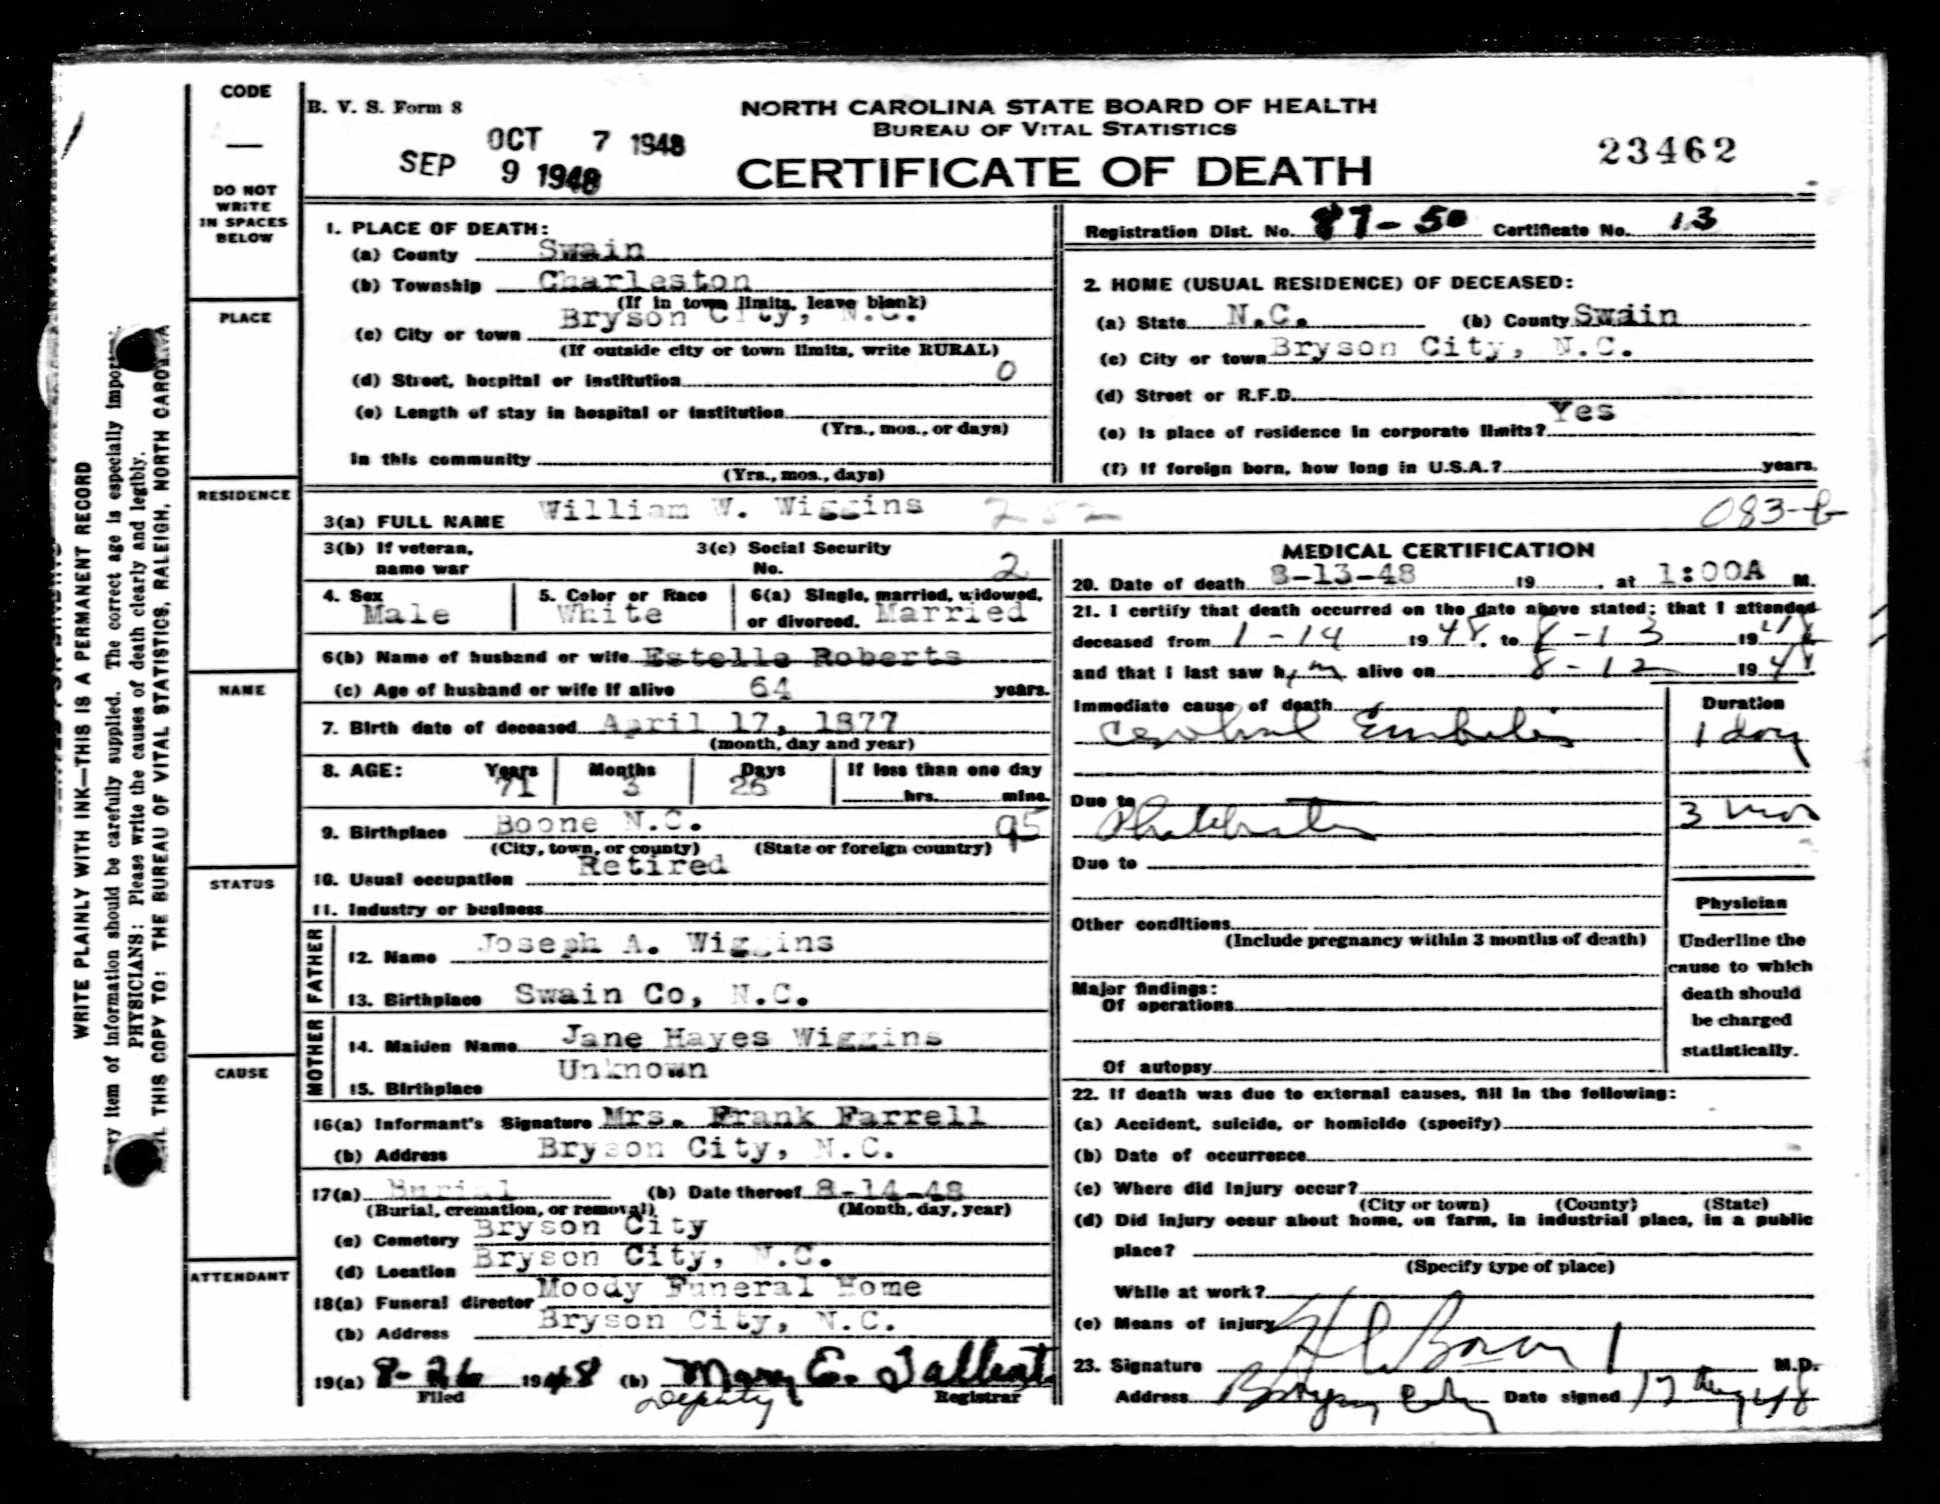 CODE
—
DO NOT
WRITE
IN SPACES
BELOW
PLACE
RESIDENCE
NAME
STATUS
CAUSE
ATTENDANT
WRITE PLAINLY WITH INK—THIS IS A PERMANENT RECORD
item of information should be carefully supplied. The correct age is especially
PHYSICIANS: Please write the causes of death clearly and legibly.
THIS COPY TO: THE BUREAU OF VITAL STATISTICS, RALEIGH, NORTH CAROLINA
B. V. S. Form 8
OCT 7 1948
SEP 9 1948
NORTH CAROLINA STATE BOARD OF HEALTH
BUREAU OF VITAL STATISTICS
CERTIFICATE OF DEATH
23462
1. PLACE OF DEATH:
(a) County Swain
(b) Township Charleston
(If in town limits, leave blank)
(c) City or town Bryson City, N.C.
(If outside city or town limits, write RURAL)
(d) Street, hospital or institution 0
(e) Length of stay in hospital or institution
(Yrs., mos., or days)
In this community
(Yrs., mos., days)
Registration Dist. No. 87-50 Certificate No. 13
2. HOME (USUAL RESIDENCE) OF DECEASED:
(a) State N.C. (b) County Swain
(c) City or town Bryson City, N.C.
(d) Street or R.F.D.
(e) Is place of residence in corporate limits? Yes
(f) If foreign born, how long in U.S.A.? years.
3(a) FULL NAME William W. Wiggins 252 083-b
3(b) If veteran, name war
3(c) Social Security No. 2
4. Sex Male
5. Color or Race White
6(a) Single, married, widowed, or divorced. Married
6(b) Name of husband or wife Estelle Roberts
(c) Age of husband or wife if alive 64 years.
7. Birth date of deceased April 17, 1877
(month, day and year)
8. AGE: Years Months Days If less than one day
71 3 26 hrs. mins.
9. Birthplace Boone N.C. 95
(City, town, or county) (State or foreign country)
10. Usual occupation Retired
11. Industry or business
FATHER
12. Name Joseph A. Wiggins
13. Birthplace Swain Co, N.C.
MOTHER
14. Maiden Name Jane Hayes Wiggins
15. Birthplace Unknown
16(a) Informant's Signature Mrs. Frank Farrell
(b) Address Bryson City, N.C.
17(a) Burial (b) Date thereof 8-14-48
(Burial, cremation, or removal) (Month, day, year)
(c) Cemetery Bryson City
(d) Location Bryson City, N.C.
18(a) Funeral director Moody Funeral Home
(b) Address Bryson City, N.C.
19(a) 8-26 1948 (b) Mary E. Tallent
Filed Deputy Registrar
MEDICAL CERTIFICATION
20. Date of death 8-13-48 19 , at 1:00A M.
21. I certify that death occurred on the date above stated; that I attended
deceased from 1-14 1948, to 8-13 1948
and that I last saw him alive on 8-12 1948.
Immediate cause of death Duration
Cerebral Embolis 1 day
Due to
3 mos
Due to
Other conditions
(Include pregnancy within 3 months of death)
Major findings:
Of operations
Of autopsy
Physician
Underline the
cause to which
death should
be charged
statistically.
22. If death was due to external causes, fill in the following:
(a) Accident, suicide, or homicide (specify)
(b) Date of occurrence
(c) Where did injury occur?
(City or town) (County) (State)
(d) Did injury occur about home, on farm, in industrial place, in a public
place?
(Specify type of place)
While at work?
(e) Means of injury
23. Signature M.D.
Address Bryson City Date signed 17 Aug 48